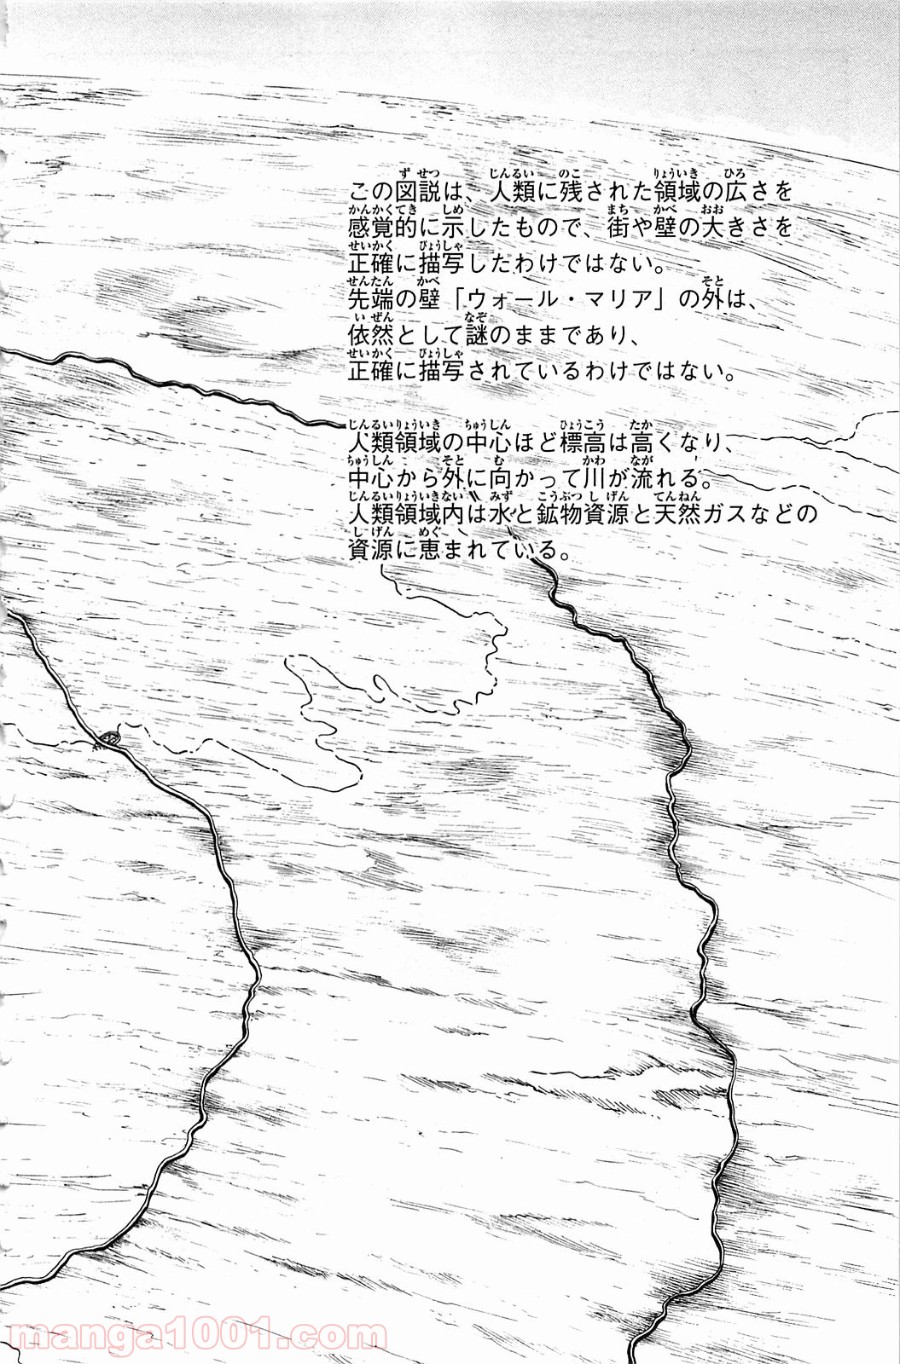 この図説は、人類に残された領域の広さを
感覚的に示したもので、街や壁の大きさを
正確に描写したわけではない。
先端の壁「ウォール・マリア」の外は、
依然として謎のままであり、
正確に描写されているわけではない。
人類領域の中心ほど標高は高くなり、
中心から外に向かって川が流れる。
人類領域内は水と鉱物資源と天然ガスなどの
資源に恵まれている。
manga1001.com